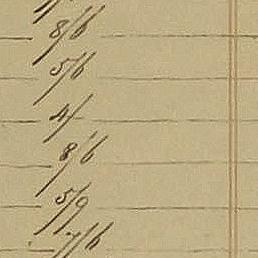 8/6
5/6
4/-
8/6
5/9
7/6